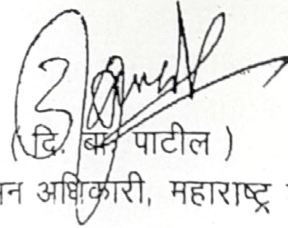 ( दि. बा. पाटील )
न अधिकारी, महाराष्ट्र